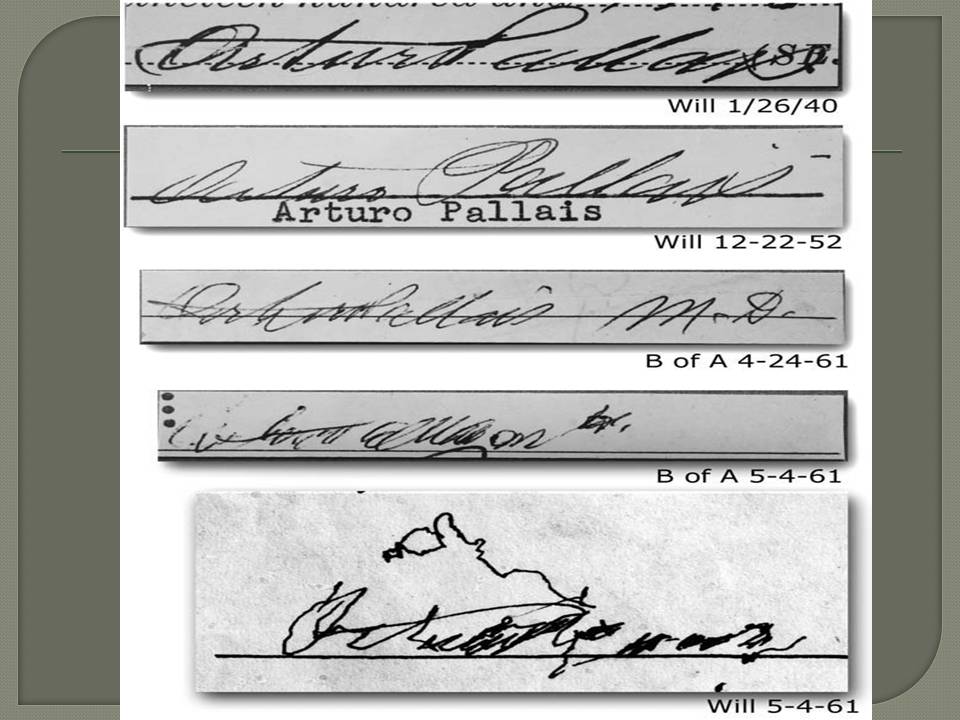 nineteen hundred and
Arturo Pallais
Will 1/26/40
Arturo Pallais
Arturo Pallais
Will 12-22-52
Arturo Pallais M.D.
B of A 4-24-61
B of A 5-4-61
Will 5-4-61